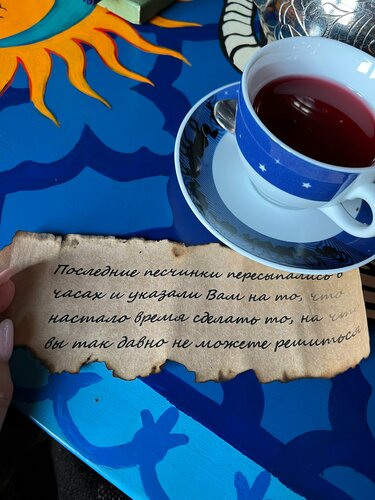 Последние песчинки пересыпались в
часах и указали Вам на то, что
настало время сделать то, на что
вы так давно не можете решиться